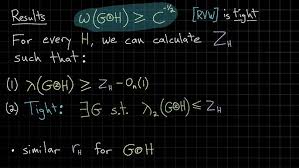 Results ω(G⊗H) ≥ C^{-1/2} [RVW] is tight
For every H, we can calculate Z_H
such that:
(1) λ(G⊗H) ≥ Z_H - O_n(1)
(2) Tight: ∃G s.t. λ₂(G⊗H) ≤ Z_H
• similar r_H for G⊗H